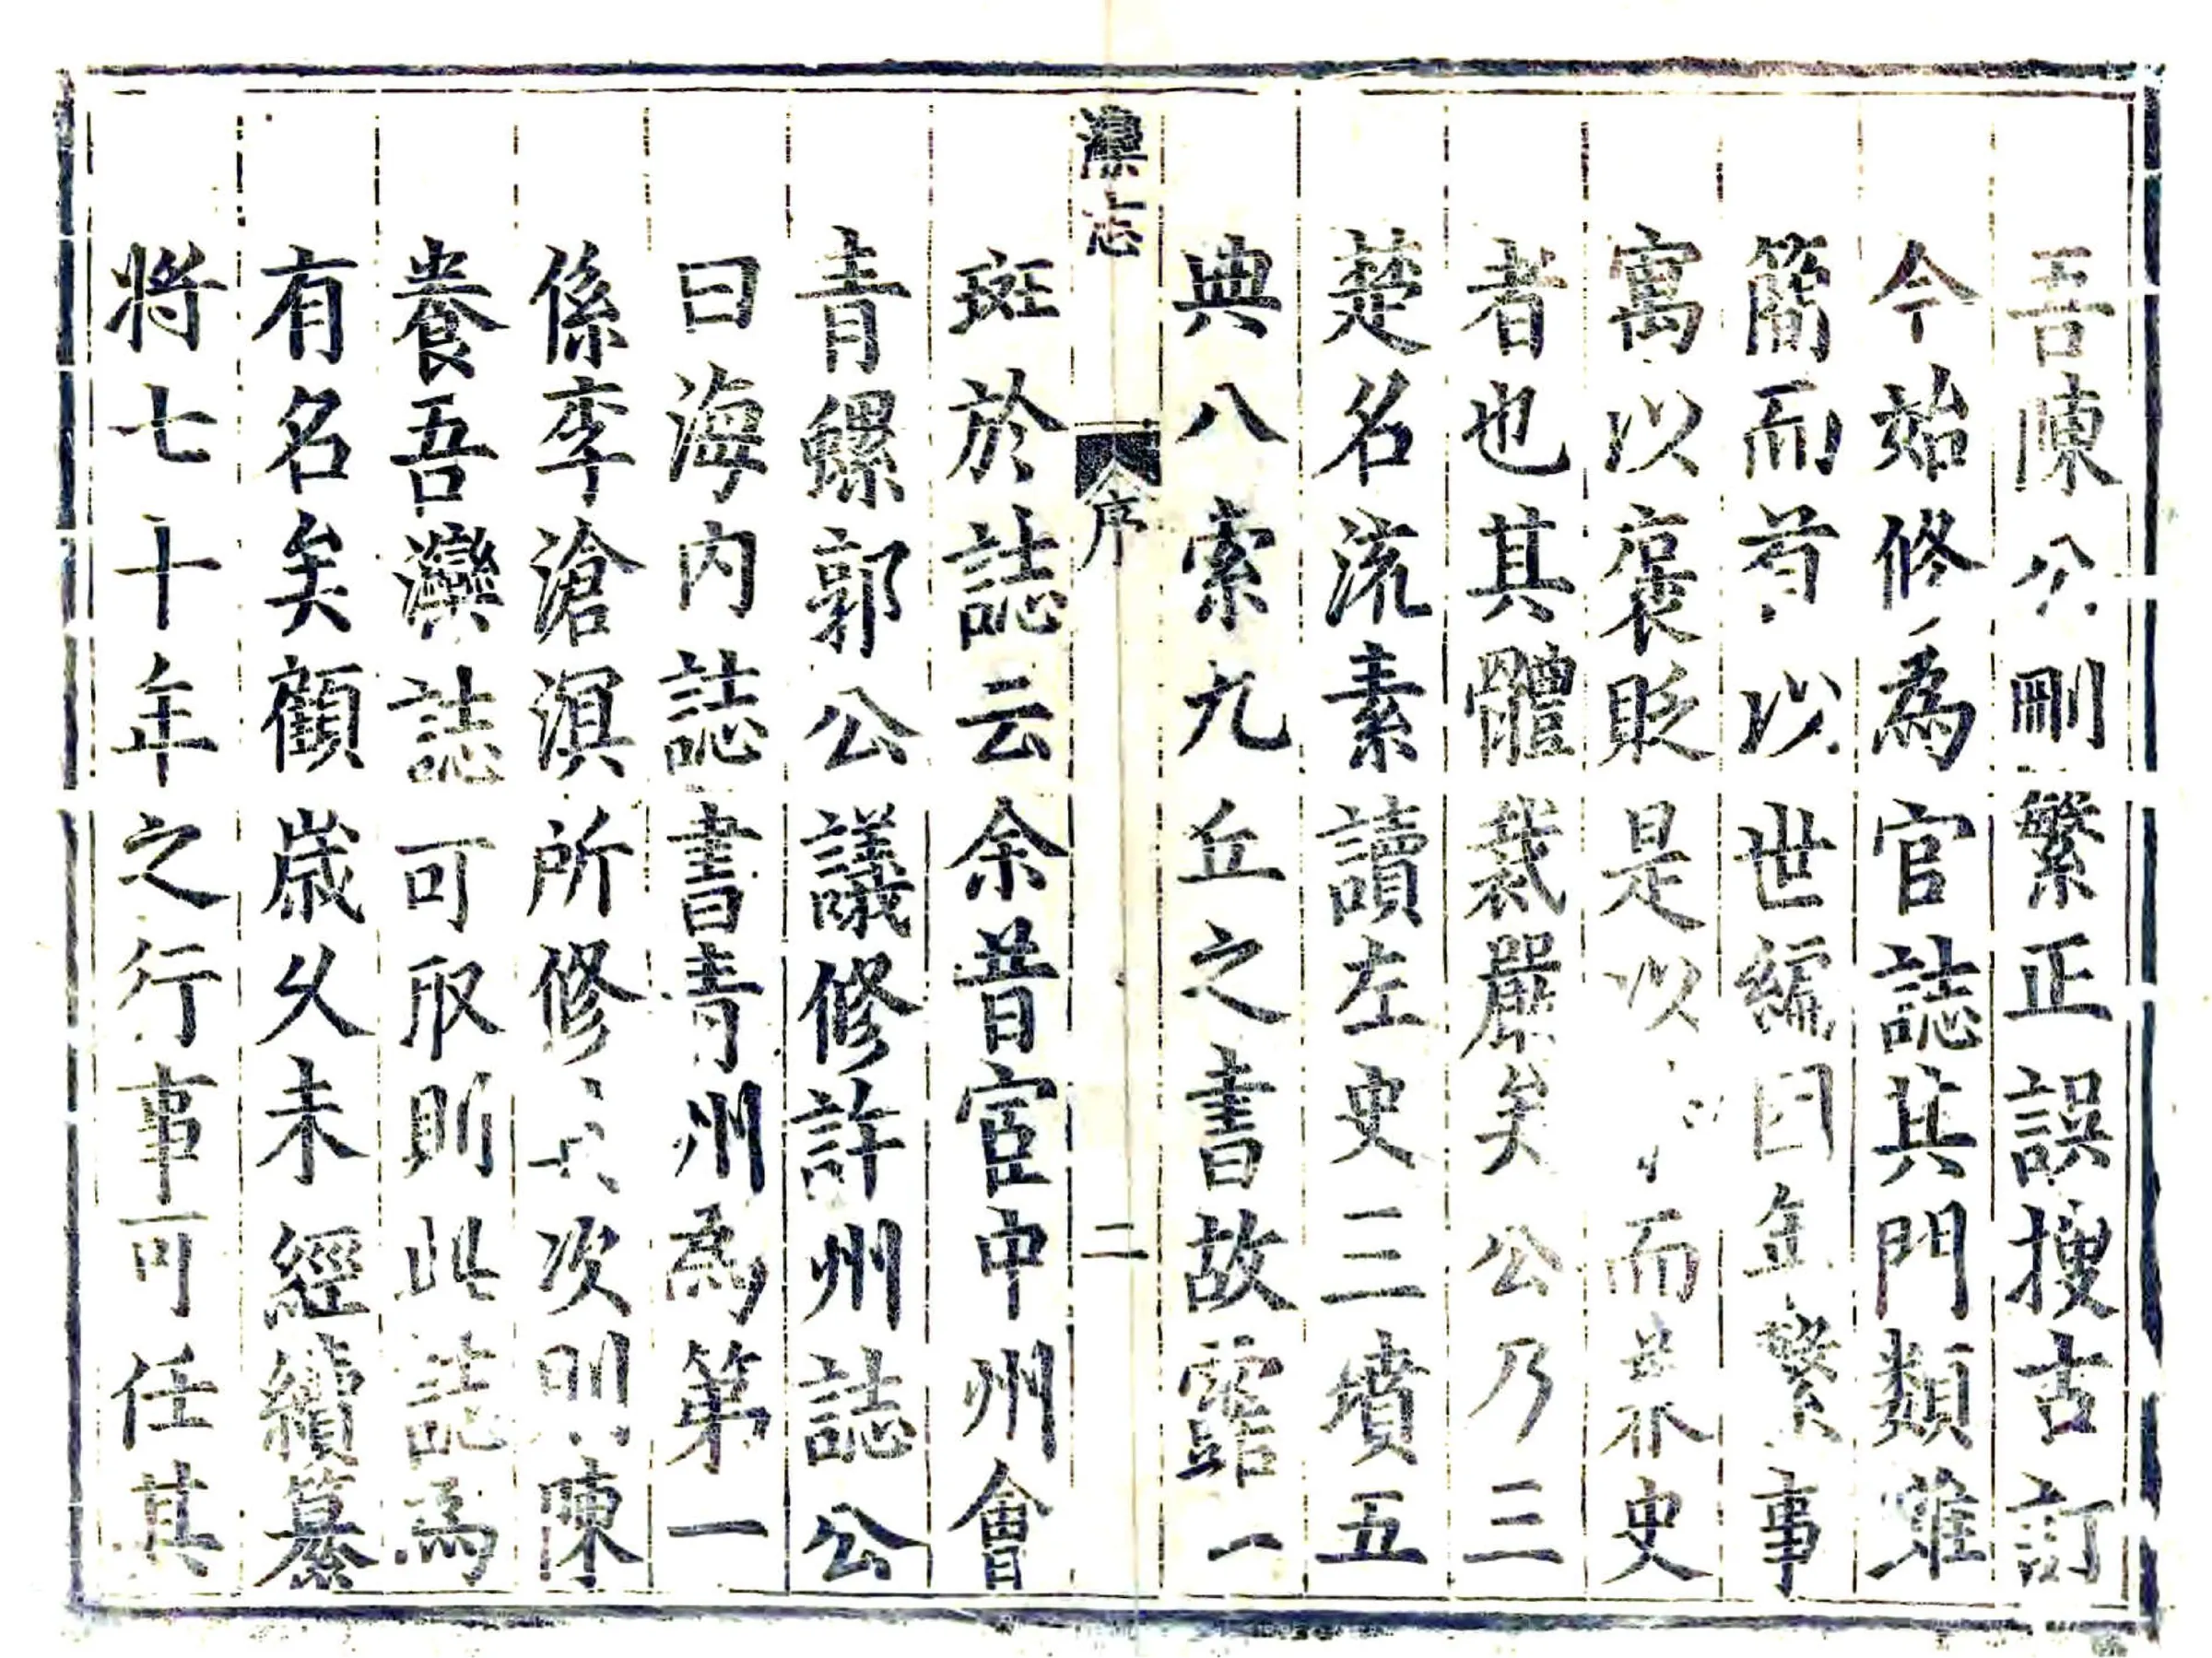 吾陳公刪繁正誤搜古訂
今始修為官誌其門類雖
簡而首以世編因年繫事
寓以褒貶是以而其不史
者也其體裁嚴矣公乃三
楚名流素讀左史三墳五
典八索九丘之書故露一
灤志
序
二
斑於誌云余昔宦中州會
青螺郭公議修許州誌公
曰海內誌書青州為第一
係李滄溟所修其次則陳
養吾灤誌可取則此誌為
有名矣顧歲久未經續纂
將七十年之行事可任其